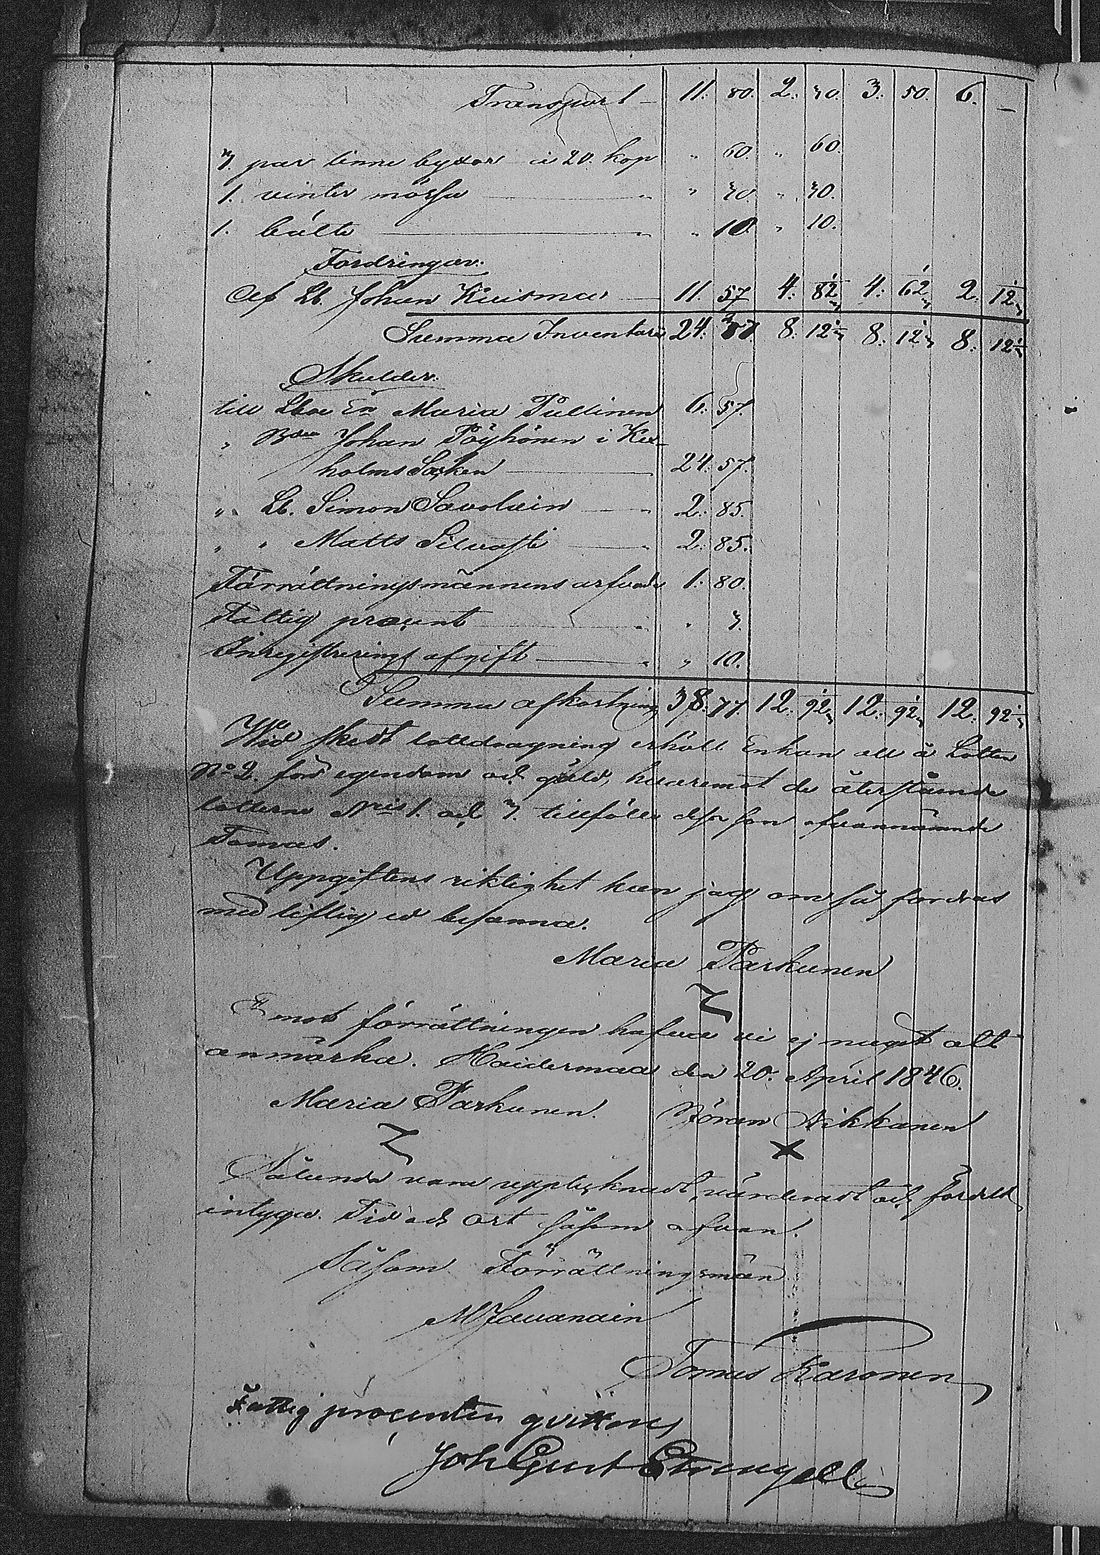 Transport — 11. 80. 2. 30. 3. 50. 6. —
3. par linne byxor á 20. kop „ 60. „ 60.
1. vinter mössa — „ „ 30. „ 30.
1. bälte — „ „ 10. „ 10.
Fordringar.
Af Lb. Johan Kuisma — 11. 57 4. 82 1/3 4. 62 1/3 2. 12 1/3
Summa Inventarii 24. 37 8. 12 1/3 8. 12 1/3 8. 12 1/3
Skulder.
till Lbor En Maria Pullinen 6. 57.
„ Bdn Johan Pöyhönen i Kex-
holms Socken — 24. 57.
„ Lb. Simon Savolain — 2. 85.
„ „ Matts Silvasti — 2. 85.
Förrättningsmännens arfvode 1. 80.
Fattig procent — „ „ 3.
Inregistrerings afgift — „ „ 10.
Summa afkortning 38. 77. 12. 92 1/3 12. 92 1/3 12. 92 1/3
Wid skedd lottdragning erhöll Enkan all å Lotten
No 2. förd egendom och gäld, hvaremot de återstående
lotterne Nris 1. och 3. tillföllo sonen ofvannämnde
Tomas.
Uppgiftens riktighet kan jag om så fordras
med liflig ed besanna.
Maria Parkunen
Emot förrättningen hafva vi ej något att
anmärka. Haidermaa den 20. April 1846.
Maria Parkunen. Jöran Nikkanen
Sålunda vara upptecknadt, värderadt och fördelt
intyga. Tid och ort såsom ofvan.
Såsom Förrättningsmän
M Javanain
Tomas Karonen
Fattig procenten qvitteras
Joh Gust Strengell